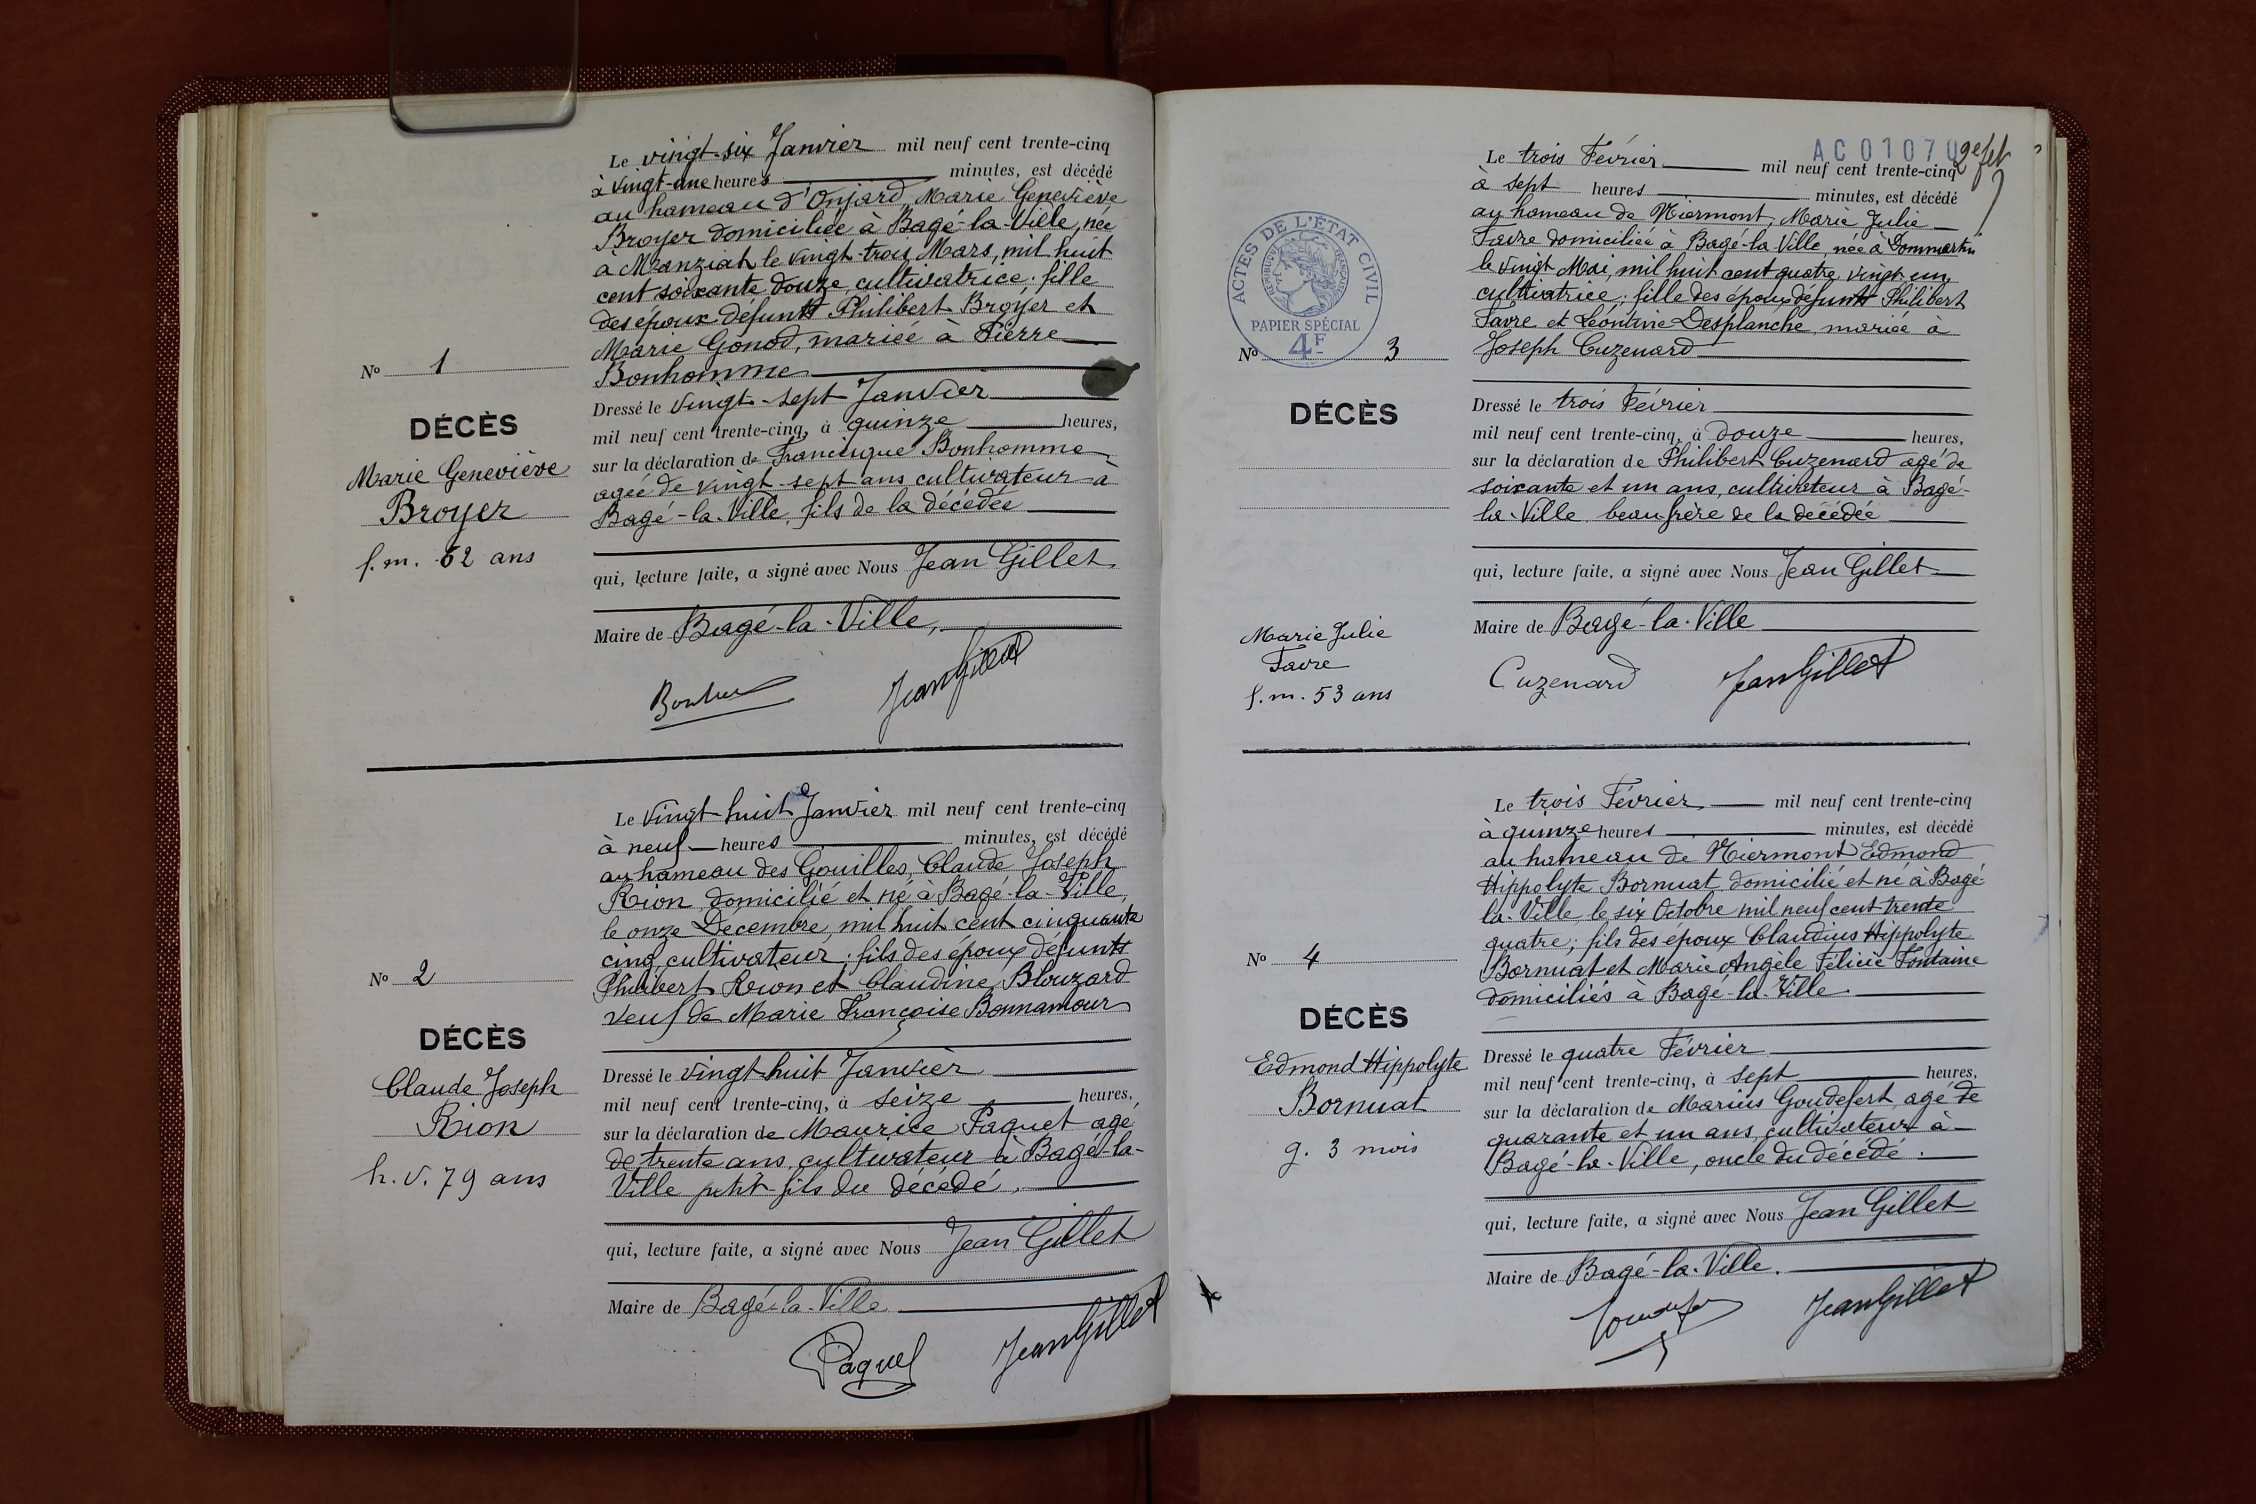 Le vingt-six Janvier mil neuf cent trente-cinq
à vingt-une heures minutes, est décédé
au hameau d'Onjard, Marie Geneviève
Broyer domiciliée à Bagé-la-Ville, née
à Manziat le vingt-trois Mars, mil huit
cent soixante douze, cultivatrice; fille
des époux défunts Philibert Broyer et
Marie Gonod, mariée à Pierre
Bonhomme
Nº 1
DÉCÈS
Marie Geneviève
Broyer
f. m. 62 ans
Dressé le vingt-sept Janvier
mil neuf cent trente-cinq, à quinze heures,
sur la déclaration de Francisque Bonhomme
agée de vingt-sept ans cultivateur à
Bagé-la-Ville, fils de la décédée
qui, lecture faite, a signé avec Nous Jean Gillet
Maire de Bagé-la-Ville,
Jean Gillet
Le vingt-huit Janvier mil neuf cent trente-cinq
à neuf heures minutes, est décédé
au hameau des Gouilles, Claude Joseph
Rion domicilié et né à Bagé-la-Ville,
le onze Décembre, mil huit cent cinquante
cinq, cultivateur; fils des époux défunts
Philibert Rion et Claudine Blouzard
veuf de Marie Françoise Bonnamour
Nº 2
DÉCÈS
Claude Joseph
Rion
h. v. 79 ans
Dressé le vingt-huit Janvier
mil neuf cent trente-cinq, à seize heures,
sur la déclaration de Maurice Paquet agé
de trente ans, cultivateur à Bagé-la-
Ville petit-fils du décédé.
qui, lecture faite, a signé avec Nous Jean Gillet
Maire de Bagé-la-Ville
Paquet Jean Gillet
AC01070
Le trois Février mil neuf cent trente-cinq
à sept heures minutes, est décédé
au hameau de Niermont, Marie Julie
Favre domiciliée à Bagé-la-Ville, née à Dommartin
le vingt Mai, mil huit cent quatre vingt un,
cultivatrice; fille des époux défunts Philibert
Favre et Léontine Desplanche, mariée à
Joseph Cuzenard
ACTES DE L'ÉTAT CIVIL
PAPIER SPÉCIAL
4F
Nº 3
DÉCÈS
Marie Julie
Favre
f. m. 53 ans
Dressé le trois Février
mil neuf cent trente-cinq, à douze heures,
sur la déclaration de Philibert Cuzenard agé de
soixante et un ans, cultivateur à Bagé-
la-Ville beau frère de la décédée
qui, lecture faite, a signé avec Nous Jean Gillet
Maire de Bagé-la-Ville
Cuzenard Jean Gillet
Le trois Février mil neuf cent trente-cinq
à quinze heures minutes, est décédé
au hameau de Niermont Edmond
Hippolyte Bornuat domicilié et né à Bagé
la-Ville le six Octobre mil neuf cent trente
quatre; fils des époux Claudius Hippolyte
Bornuat et Marie Angèle Félicie Fontaine
domiciliés à Bagé-la-Ville.
Nº 4
DÉCÈS
Edmond Hippolyte
Bornuat
g. 3 mois
Dressé le quatre Février
mil neuf cent trente-cinq, à sept heures,
sur la déclaration de Marius Goudefert agé de
quarante et un ans, cultivateur à
Bagé-la-Ville, oncle du décédé.
qui, lecture faite, a signé avec Nous Jean Gillet
Maire de Bagé-la-Ville.
Jean Gillet